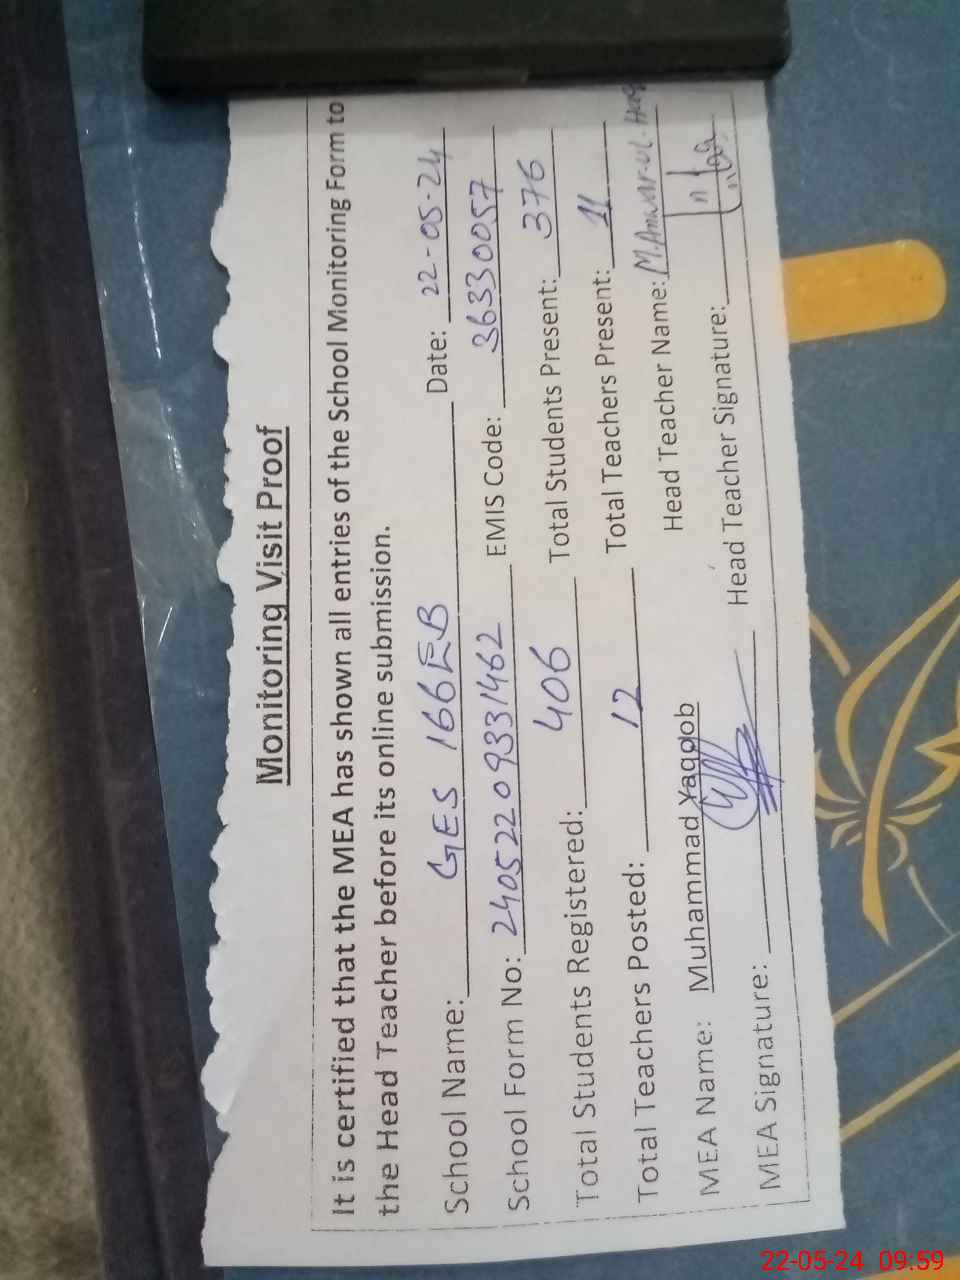 Monitoring Visit Proof
It is certified that the MEA has shown all entries of the School Monitoring Form to
the Head Teacher before its online submission.
School Name: GES 166EB Date: 22-05-24
School Form No: 24052209331462 EMIS Code: 36330057
Total Students Registered: 406 Total Students Present: 376
Total Teachers Posted: 12 Total Teachers Present: 11
MEA Name: Muhammad Yaqoob Head Teacher Name: M.Anwar-ul-Haq
MEA Signature: Head Teacher Signature:
22-05-24 09:59